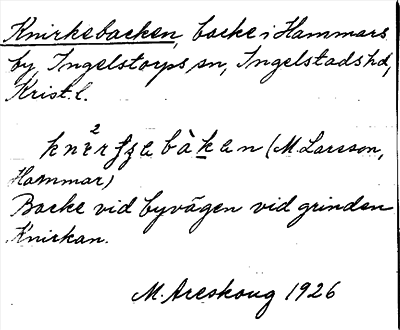 Knirkebacken, backe i Hammars
by Ingelstorps sn, Ingelstads hd,
Krist. l.
(M. Larsson,
Hammar)
Backe vid byvägen vid grinden
Knirkan.
M. Areskoug 1926